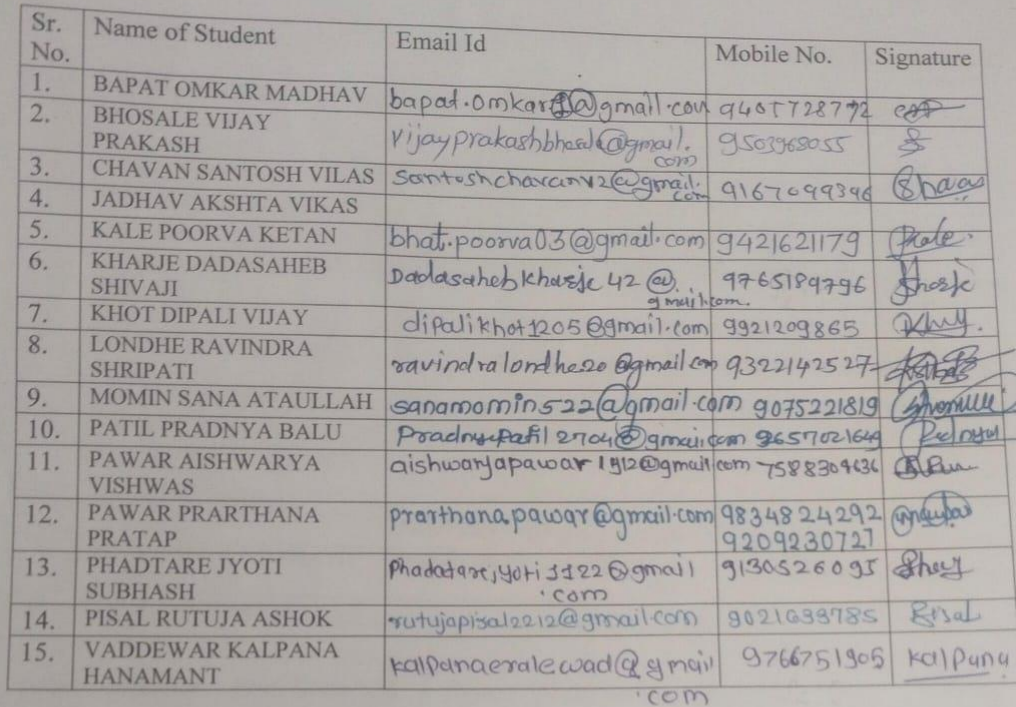 Sr. No. Name of Student Email Id Mobile No. Signature
1. BAPAT OMKAR MADHAV @gmail.com
2. BHOSALE VIJAY PRAKASH @gmail.com
3. CHAVAN SANTOSH VILAS santoshchavanv2@gmail.com 9167099396
4. JADHAV AKSHTA VIKAS
5. KALE POORVA KETAN bhat.poorva03@gmail.com 9421621179 Pkale
6. KHARJE DADASAHEB SHIVAJI Dadasahebkharje42@gmail.com. 9765189796
7. KHOT DIPALI VIJAY dipalikhot1205@gmail.com 9921209865
8. LONDHE RAVINDRA SHRIPATI ravindralondhe20@gmail.com 9322142527
9. MOMIN SANA ATAULLAH sanamomin522@gmail.com 9075221819
10. PATIL PRADNYA BALU 9657021649
11. PAWAR AISHWARYA VISHWAS aishwaryapawar1912@gmail.com
12. PAWAR PRARTHANA PRATAP prarthanapawar@gmail.com 9834824292
9209230727
13. PHADTARE JYOTI SUBHASH phadatarejyoti1122@gmail.com 9130526095
14. PISAL RUTUJA ASHOK rutujapisal2212@gmail.com Pisal
15. VADDEWAR KALPANA HANAMANT kalpanaeralewad@gmail.com 9766751905 kalpana